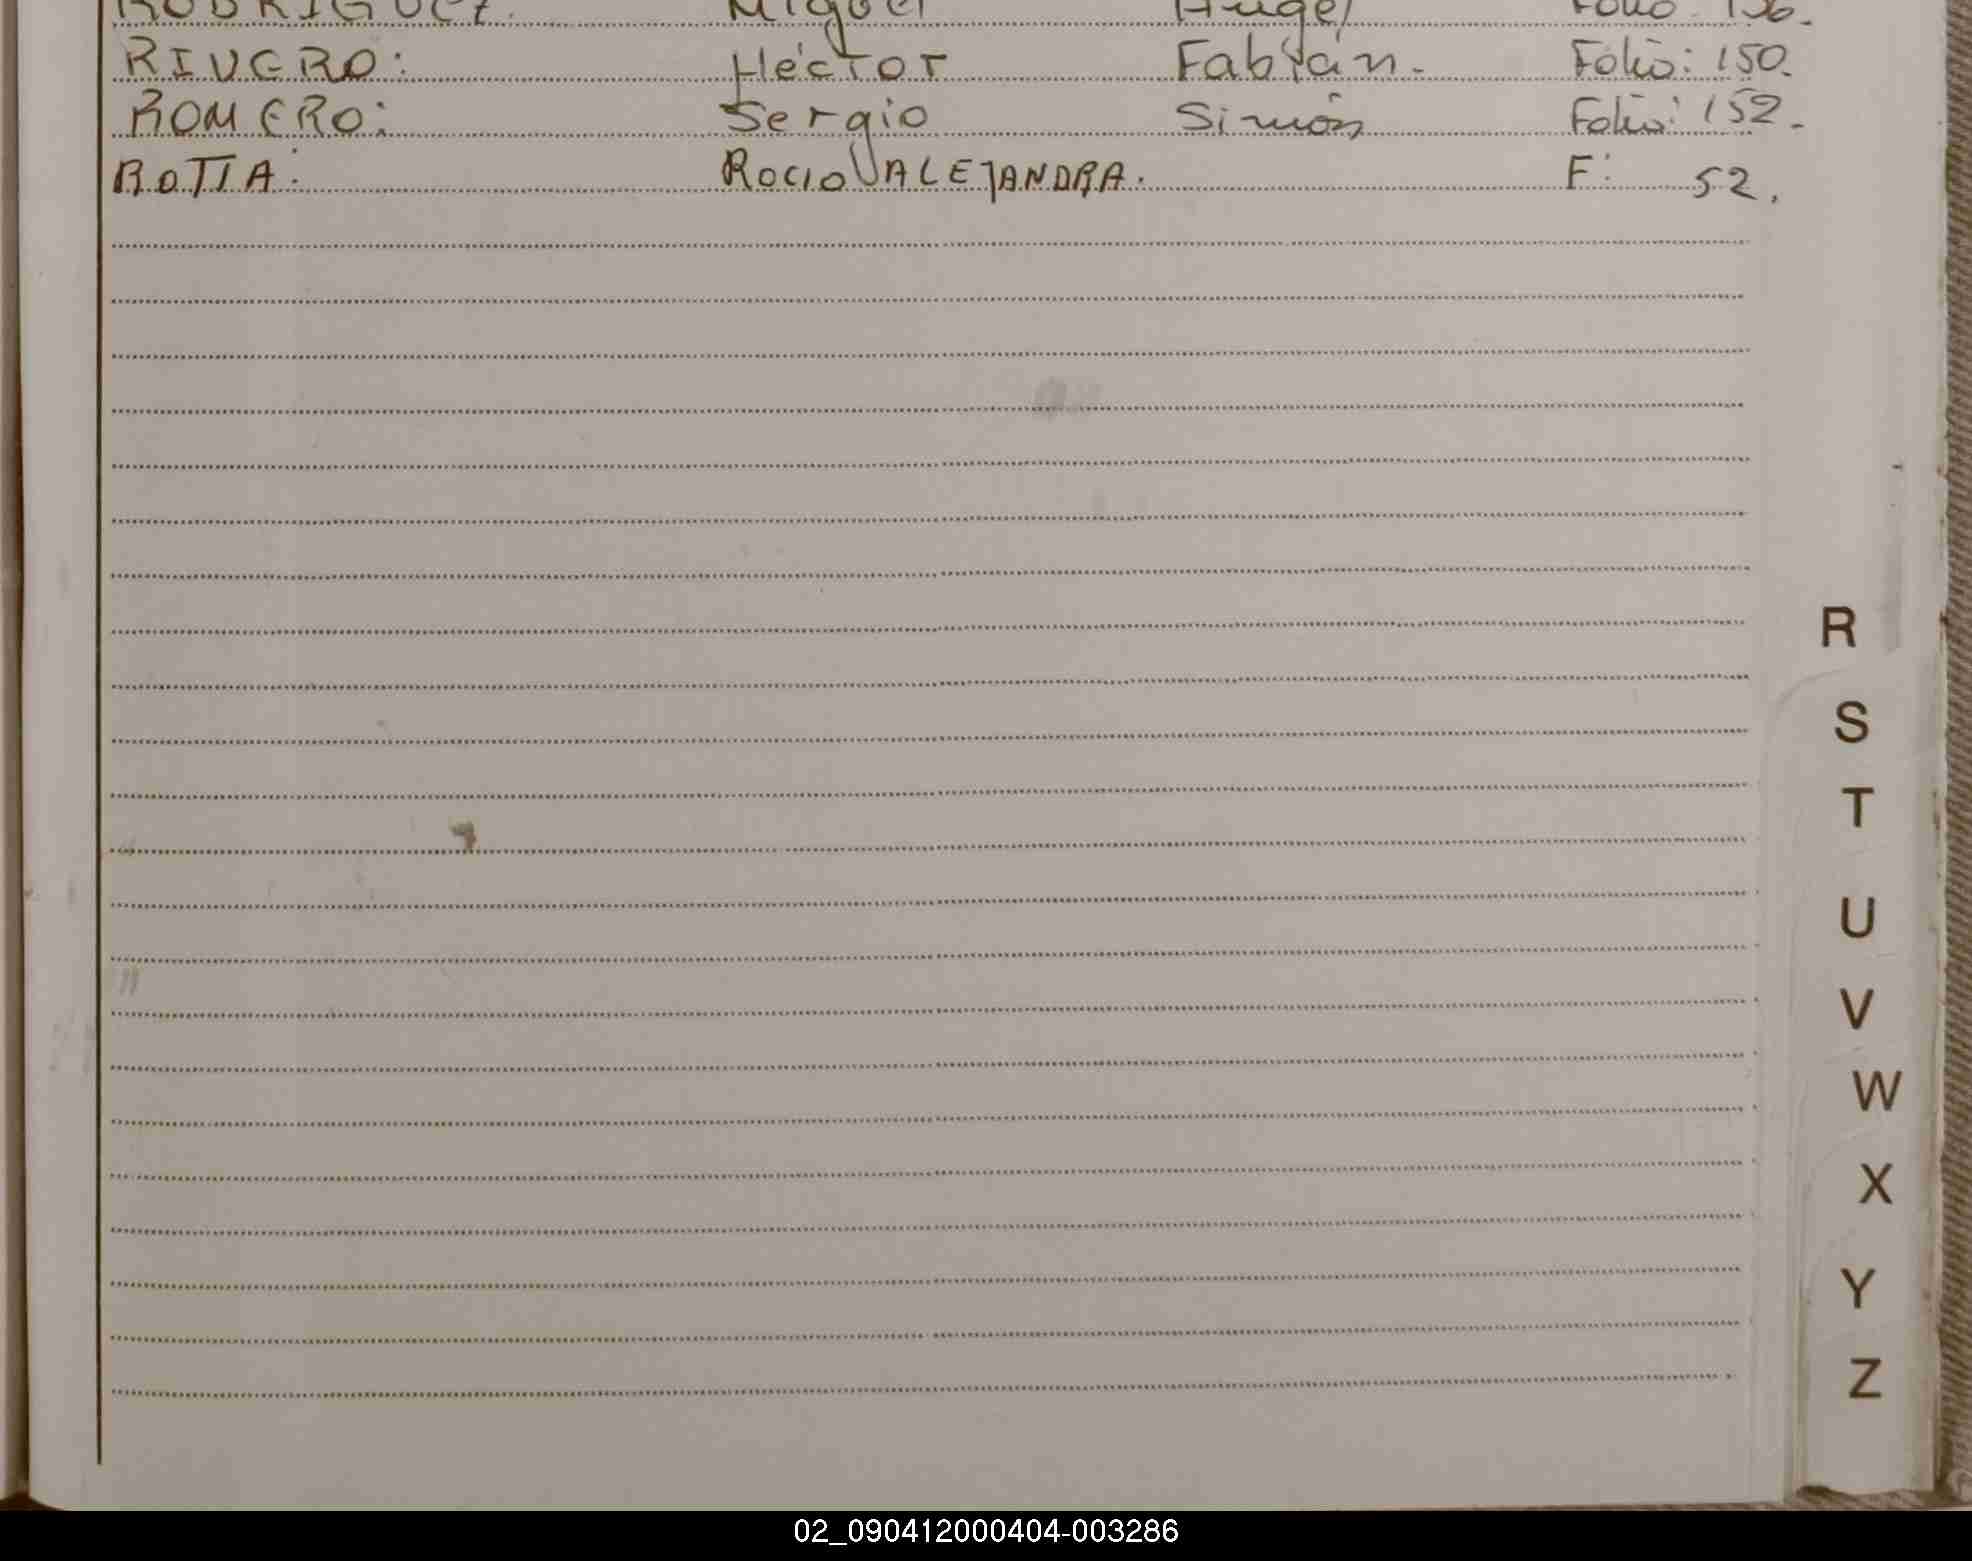 RODRIGUEZ. Miguel Angel Folio: 156.
RIVERO: Héctor Fabián. Folio: 150.
ROMERO: Sergio Simón Folio: 152.
ROTTA: ROCIO ALEJANDRA. F: 52.
R
S
T
U
V
W
X
Y
Z
02_090412000404-003286